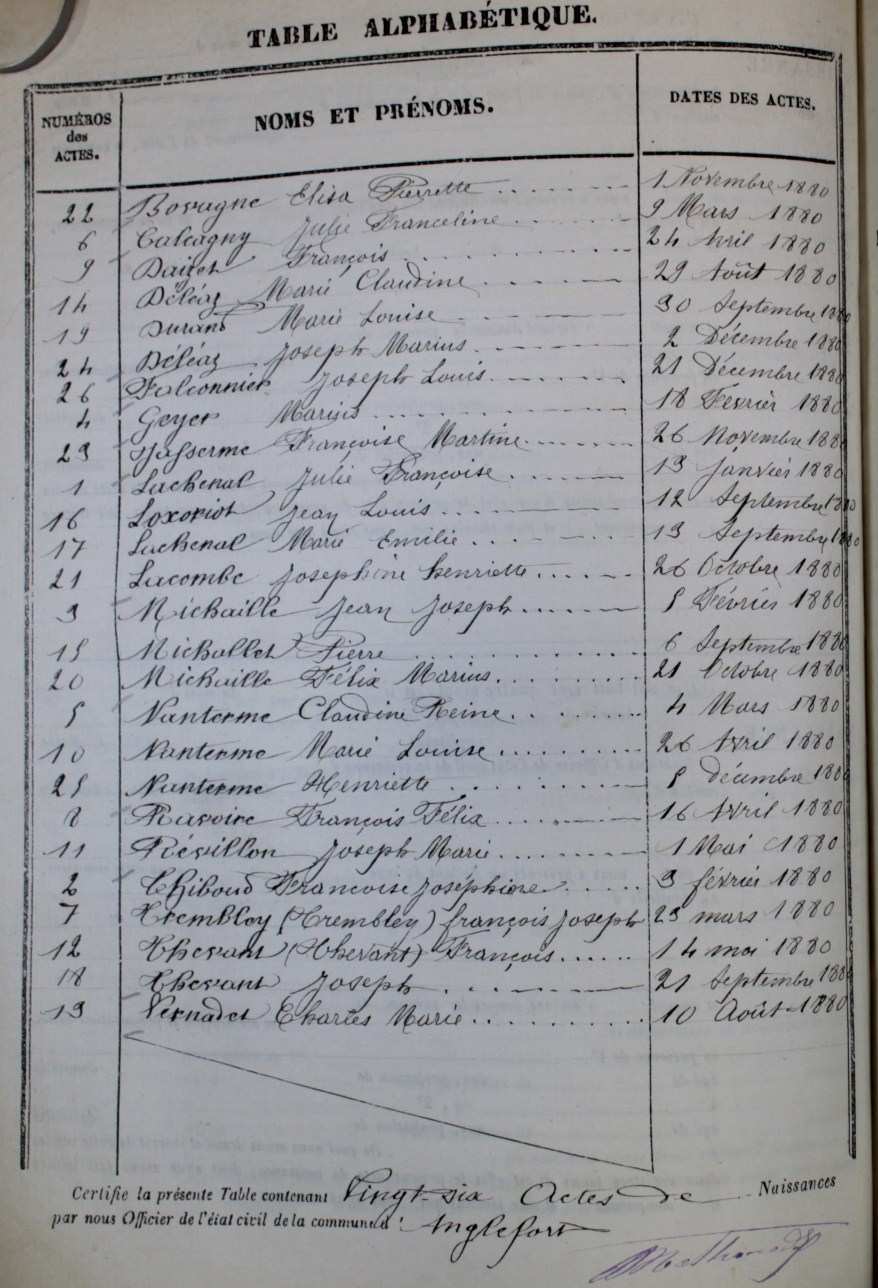 TABLE ALPHABÉTIQUE.
NUMÉROS des ACTES. NOMS ET PRÉNOMS. DATES DES ACTES.
22 Bovagne Elisa Pierrette 1 Novembre 1880
6 Calcagny Julie Franceline 9 Mars 1880
9 François 24 Avril 1880
14 Déléaz Marie Claudine 29 Août 1880
19 Durand Marie Louise 30 Septembre 1880
24 Déléaz Joseph Marius 2 Décembre 1880
26 Falconnier Joseph Louis 21 Décembre 1880
4 Geyer Marius 18 Fevrier 1880
23 Françoise Martine 26 Novembre 1880
1 Lachenal Julie Françoise 13 janvier 1880
16 Loxoriot Jean Louis 12 Septembre 1880
17 Lachenal Marie Emilie 13 Septembre 1880
21 Lacombe Josephine henriette 26 Octobre 1880
3 Michaille Jean Joseph 5 Février 1880
15 Michollet Pierre 6 Septembre 1880
20 Michaille Félix Marius 21 Octobre 1880
5 Nanterme Claudine Reine 4 Mars 1880
10 Nanterme Marie Louise 26 Avril 1880
25 Nanterme Henriette 5 décembre 1880
8 Ravoire François Félix 16 Avril 1880
11 Révillon Joseph Marie 1 Mai 1880
2 Thiboud Francoise Joséphine 3 février 1880
7 Trembloy (Trembley) françois Joseph 23 mars 1880
12 Thevant (Thevant) François 14 mai 1880
18 Thevant Joseph 21 Septembre 1880
13 Vernadet Charles Marie 10 Août 1880
Certifie la présente Table contenant Vingt-six Actes de Naissances
par nous Officier de l'état civil de la commune d' Anglefort